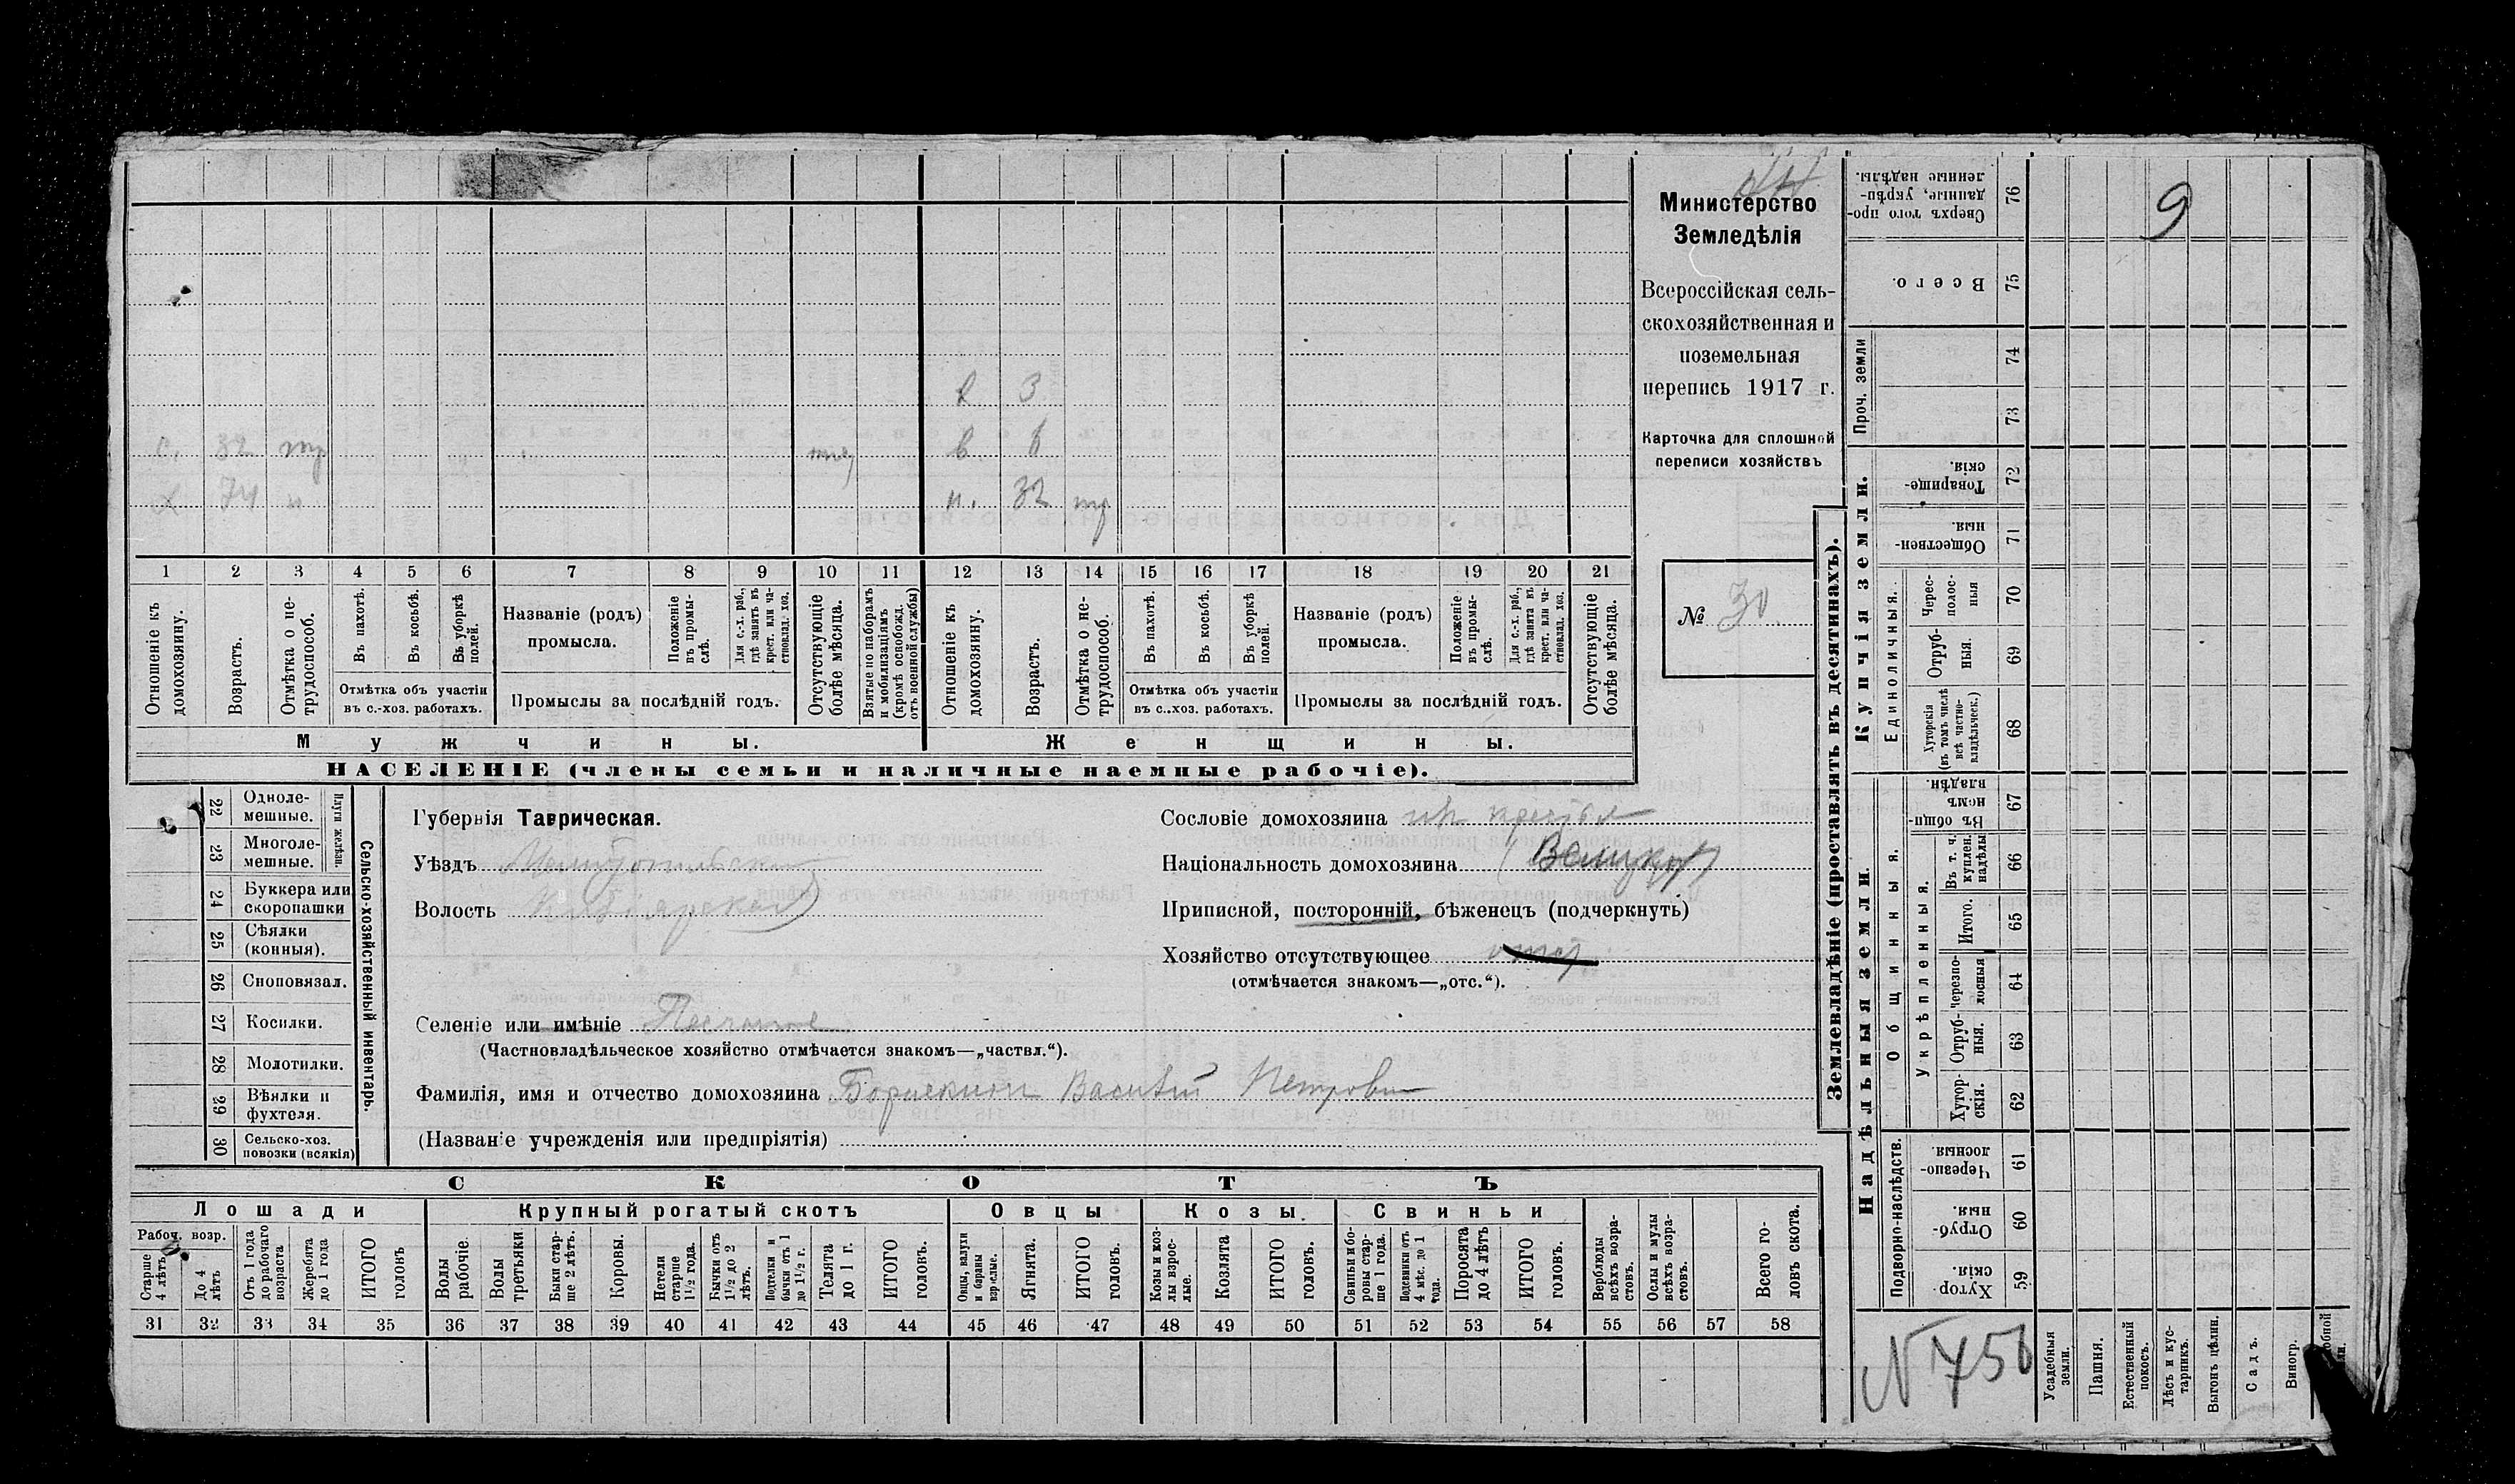 9
Министерство
Земледѣлія
Всероссійская сель-
скохозяйственная и
поземельная
перепись 1917 г.
Карточка для сплошной
переписи хозяйствъ
№ 30
в 3
с. 32 тр в 6
Х 74 н ж. 32 тр
1 2 3 4 5 6 7 8 9 10 11 12 13 14 15 16 17 18 19 20 21
Отношеніе къ домохозяину.
Возрастъ.
Отмѣтка о не-трудоспособ.
Въ пахотѣ.
Въ косьбѣ.
Въ уборкѣ полей.
Отмѣтка объ участіи
въ с.-хоз. работахъ.
Названіе (родъ)
промысла.
Положеніе въ промы-слѣ.
Для с.-х. раб., гдѣ занятъ въ крест. или ча-стновлад. хоз.
Промыслы за послѣдній годъ.
Отсутствующіе болѣе мѣсяца.
Взятые по наборамъ и мобилизаціямъ (кромѣ освобожд. отъ военной службы)
Отношеніе къ домохозяину.
Возрастъ.
Отмѣтка о не-трудоспособ.
Въ пахотѣ.
Въ косьбѣ.
Въ уборкѣ полей.
Отмѣтка объ участіи
въ с.-хоз. работахъ.
Названіе (родъ)
промысла.
Положеніе въ промы-слѣ.
Для с.-х. раб., гдѣ занятъ въ крест. или ча-стновлад. хоз.
Промыслы за послѣдній годъ.
Отсутствующіе болѣе мѣсяца.
Мужчины. Женщины.
НАСЕЛЕНІЕ (члены семьи и наличные наемные рабочіе).
22 Одноле-мешные.
23 Многоле-мешные.
Плуги желѣзн.
24 Буккера или скоропашки
25 Сѣялки (конныя).
26 Сноповязал.
27 Косилки.
28 Молотилки.
29 Вѣялки и фухтеля.
30 Сельско-хоз. повозки (всякія)
Сельско-хозяйственный инвентарь.
Губернія Таврическая.
Уѣздъ Мелитопольский
Волость
Сословіе домохозяина
Національность домохозяина
Приписной, посторонній, бѣженецъ (подчеркнуть)
Хозяйство отсутствующее отс
(отмѣчается знакомъ—„отс.“).
Селеніе или имѣніе
(Частновладѣльческое хозяйство отмѣчается знакомъ—„частвл.“).
Фамилія, имя и отчество домохозяина Василій Петрович
(Названіе учрежденія или предпріятія)
СКОТЪ
Лошади Крупный рогатый скотъ Овцы Козы. Свиньи
Рабоч. возр.
Старше 4 лѣтъ
До 4 лѣтъ
Отъ 1 года до рабочаго возраста
Жеребята до 1 года
ИТОГО головъ
Волы рабочіе.
Волы третьяки
Быки стар-ше 2 лѣтъ.
Коровы.
Нетели старше 1½ года.
Бычки отъ 1½ до 2 лѣтъ.
Подтелки и бычки отъ 1 до 1½ г.
Телята до 1 г.
ИТОГО головъ.
Овцы, валухи и бараны взрослые.
Ягнята.
ИТОГО головъ.
Козы и коз-лы взрос-лые.
Козлята
ИТОГО головъ.
Свиньи и бо-ровы стар-ше 1 года.
Подсвинки отъ 4 мѣс. до 1 года.
Поросята до 4 лѣтъ
ИТОГО головъ.
Верблюды всѣхъ возра-стовъ.
Ослы и мулы всѣхъ возра-стовъ.
Всего го-ловъ скота.
31 32 33 34 35 36 37 38 39 40 41 42 43 44 45 46 47 48 49 50 51 52 53 54 55 56 57 58
Землевладѣніе (проставлять въ десятинахъ).
Купчія земли.
76 Сверхъ того про-данные, укрѣп-ленные надѣлы.
75 Всего.
Проч. земли
74
73
72 Товарище-скія.
71 Обществен-ныя.
Единоличныя.
70 Черес-полос-ныя
69 Отруб-ныя.
68 Хуторскія (въ томъ числѣ всѣ частно-владѣльческ.)
Надѣльныя земли.
Общинныя.
67 Въ общин-номъ владѣн.
Укрѣпленныя.
66 Въ т. ч. куплен. надѣлы
65 Итого.
64 Черезпо-лосныя
63 Отруб-ныя.
62 Хутор-скія.
Подворно-наслѣдств.
61 Черезпо-лосныя.
60 Отруб-ныя.
59 Хутор-скія.
Усадебныя земли.
Пашня.
Естественный покосъ.
Лѣсъ и кус-тарникъ.
Выгонъ цѣлин.
Садъ.
Виногр.